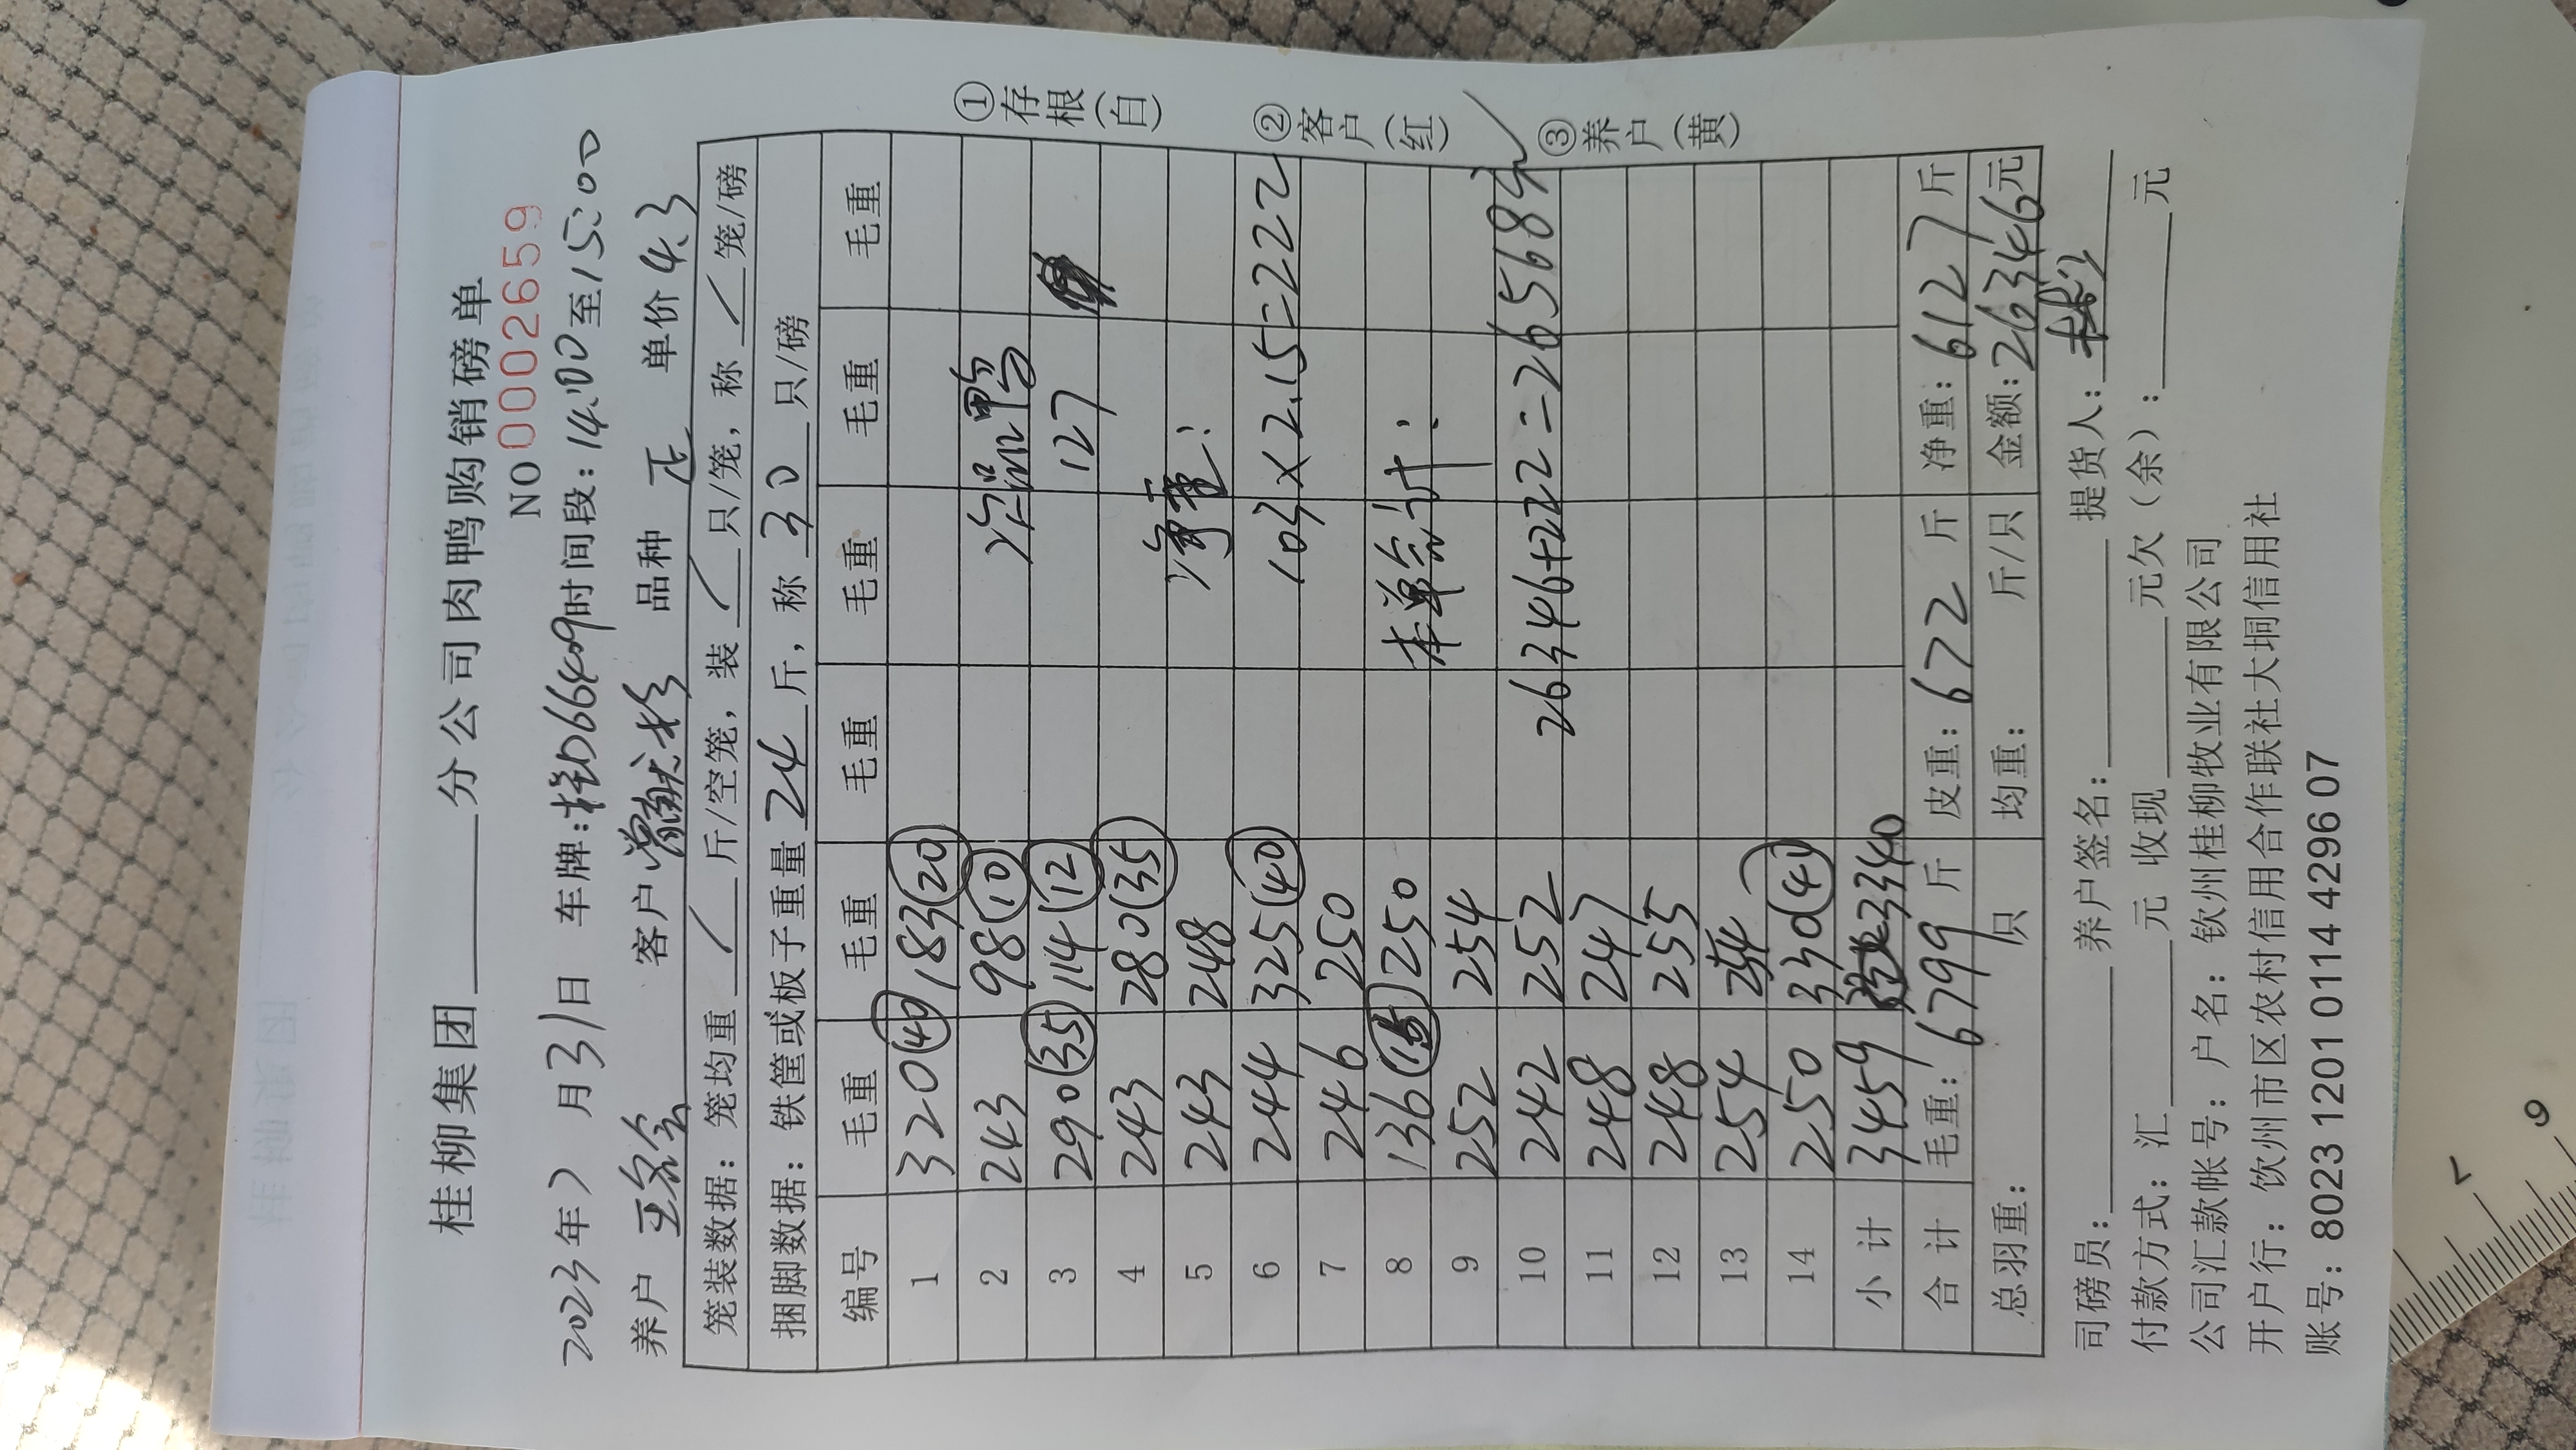 桂柳集团______分公司肉鸭购销磅单
NO 0002659
2023年7月31日 车牌:桂D66409时间段:14:00至15:00
养户 客户 曾献彬 品种 正 单价 4.3
笼装数据:笼均重 / 斤/空笼,装 / 只/笼,称 / 笼/磅
捆脚数据:铁筐或板子重量 24 斤,称 30 只/磅
编号 毛重 毛重 毛重 毛重 毛重 毛重
1 320(40) 183(20)
2 243 98(10) 次品鸭
3 290(35) 114(12) 127
4 243 280(35)
5 243 248 净重:
6 244 325(40) 103×2.15=222
7 246 250
8 136(15) 250 本单合计:
9 252 254
10 242 252 26346+222=26568元
11 248 247
12 248 255
13 254
14 250 330(41)
小计 3459 3340
合计 毛重:6799斤 皮重:672斤 净重:6127斤
总羽重: 只 均重: 斤/只 金额:26346元
司磅员:______ 养户签名:______ 提货人:______
付款方式:汇______元 收现______元欠(余):______元
公司汇款帐号:户名:钦州桂柳牧业有限公司
开户行:钦州市区农村信用合作联社大垌信用社
账号:8023 1201 0114 4296 07
①存根(白)
②客户(红)
③养户(黄)